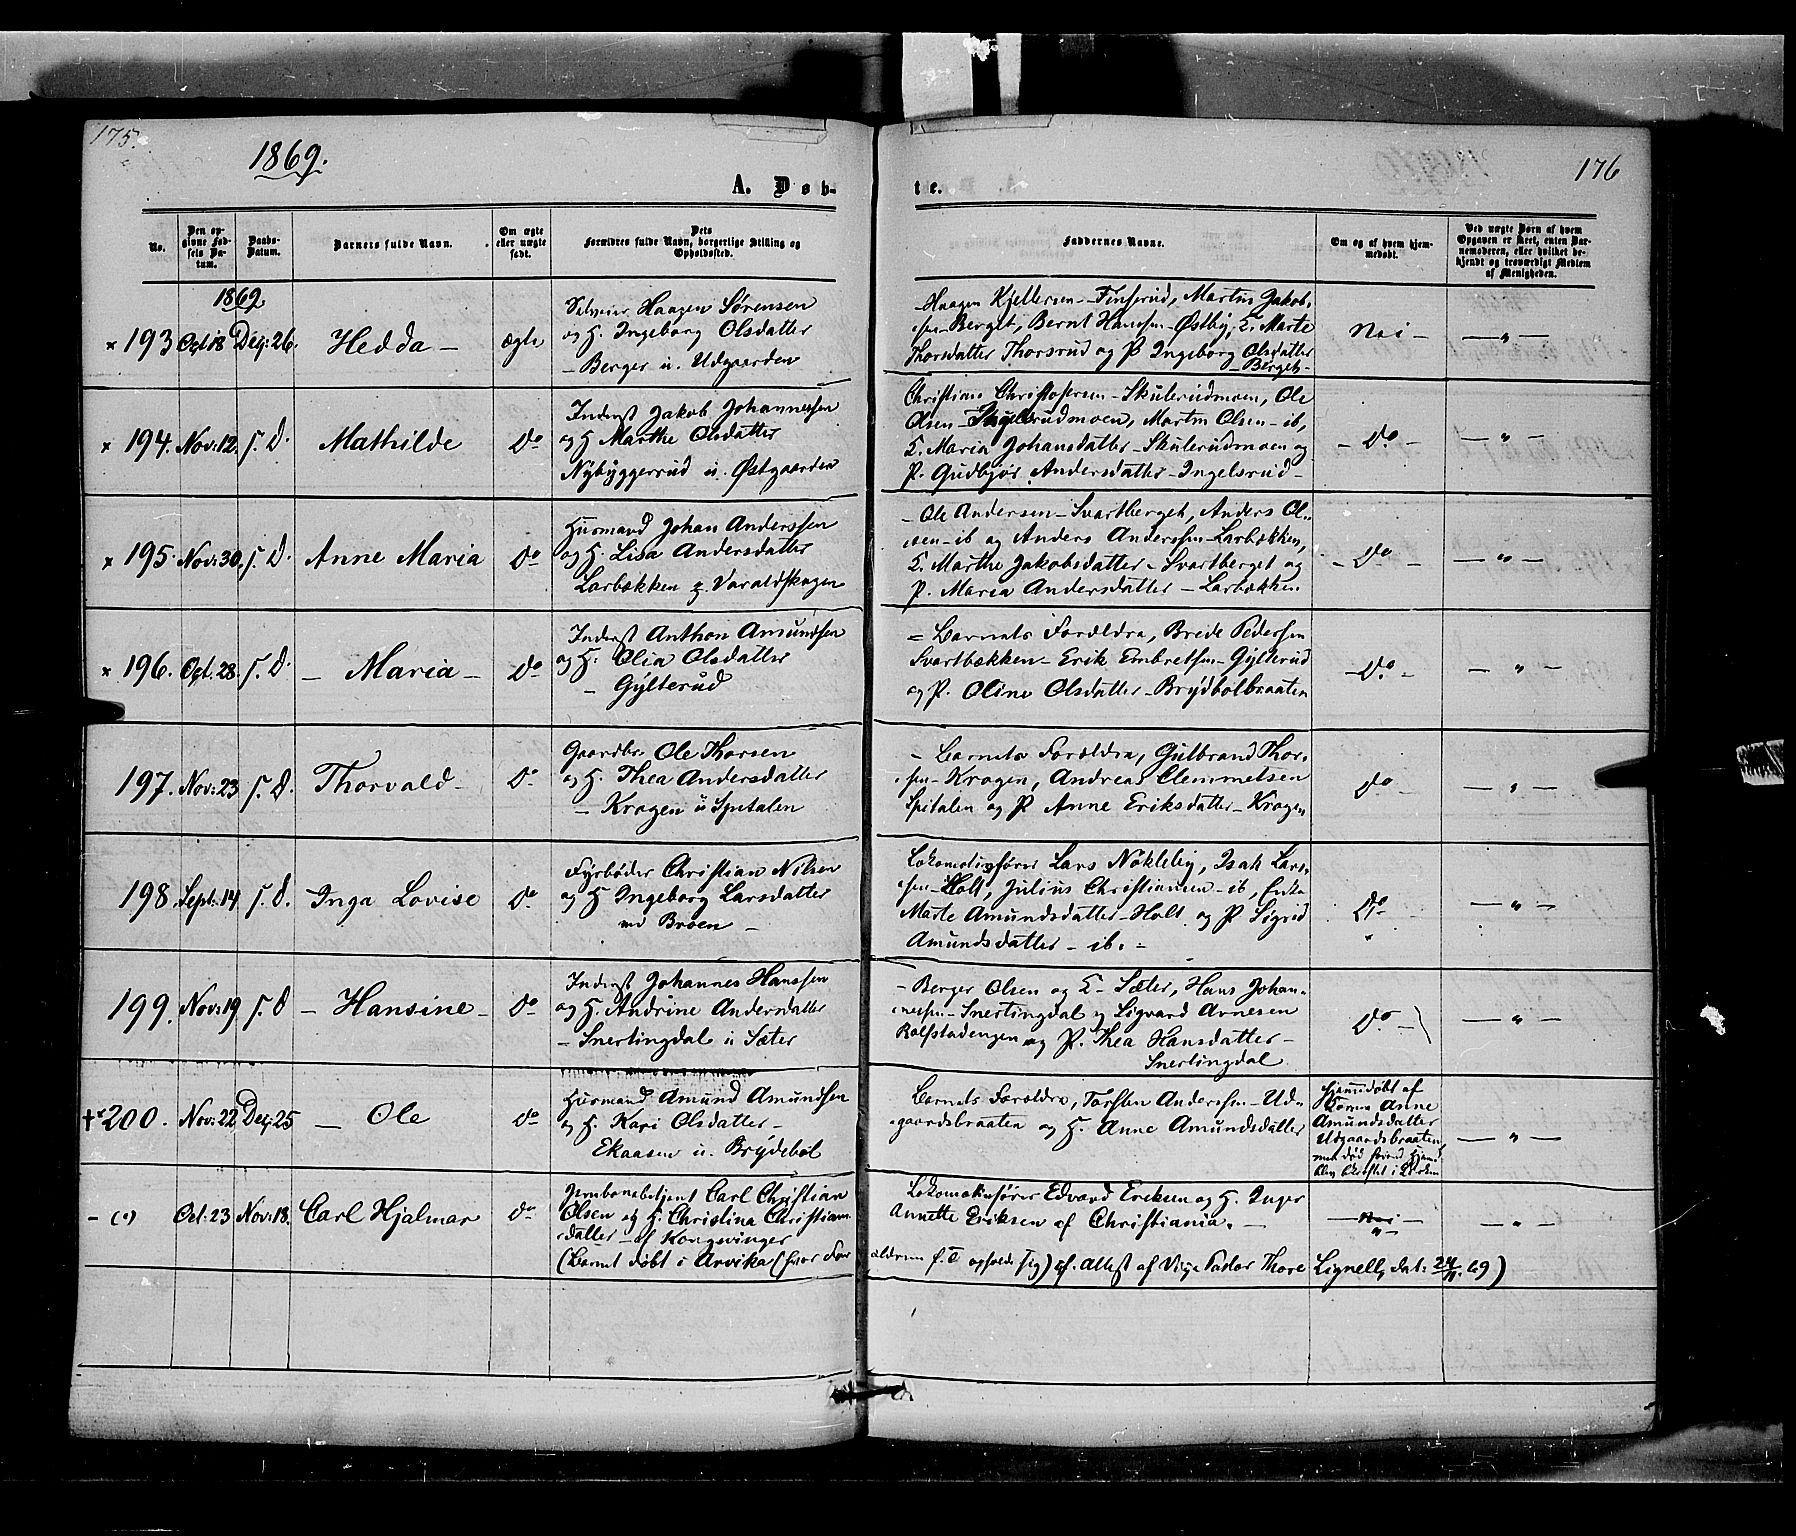 175.
1869.
A. Døb-
No.
Den op-
givne Fød-
sels Da-
tum.
Daabs-
Datum.
Barnets fulde Navn.
Om ægte
eller uægte
født.
Dets
Forældres fulde Navn, borgerlige Stilling og
Opholdssted.
1869
× 193 Oct 18 Dec: 26. Hedda – ægte
Selveier Haagen Sørensen
og H. Ingeborg Olsdatter
– Berger u. Udgaarden
× 194. Nov: 12. s. D. Mathilde Do
Inderst Jakob Johannessen
og H Marthe Olsdatter
Nybyggerrud u. Østgaarden
× 195. Nov: 30. s. D. Anne Maria Do
Husmand Johan Anderssen
og H. Lisa Andersdatter
Larbækken p. Varaldskogen
× 196. Oct. 28. s. D. – Maria – Do
Inderst Anthon Amundsen
og H. Olia Olsdatter
– Gylterud
197. Nov: 23 s. D. Thorvald – Do
Gaardbr. Ole Thorsen
og H. Thea Andersdatter
– Kragen u Spitalen
198 Sept: 14 s. D. Inga Lovise Do
Fyrbøder Christian Nilsen
og H Ingeborg Larsdatter
ved Broen –
199. Nov: 19 s. D – Hansine – Do
Inderst Johannes Hanssen
og H. Andrine Andersdatter
– Snertingdal u Sæter
†× 200. Nov: 22 Dec: 25 – Ole do
Husmand Amund Amundsen
og H. Kari Olsdatter –
Ekaasen u. Brydebøl
– (") Oct. 23 Nov: 18. Carl Hjalmar do
Jernbanebetjent Carl Christian
Olsen og H. Christina Christians
datter – af Kongsvinger
(Barnet døbt i Arvika (hvor For
176
te.
Faddernes Navne.
Om og af hvem hjem-
medøbt.
Ved uægte Børn af hvem
Opgaven er skeet, enten Bar-
nemoderen, eller hvilket be-
kjendt og troværdigt Medlem
af Menigheden.
– Haagen Kjellersen – Finserud, Martin Jakob-
sen – Berget, Bernt Hanssen – Østby, E. Marte
Thorsdatter Thorsrud og P Ingeborg Olsdatter
– Berget –
Nei – – " –
Christian Christofersen – Skulerudmoen, Ole
Olsen – Ingelsrudmoen, Martin Olsen – ib,
E. Maria Johansdatter – Skulerudmoen og
P. Gudbjør Andersdatter – Ingelsrud –
– Do – – " –
– Ole Andersen – Svartberget, Anders Ol-
sen – ib og Anders Anderssen – Larbækken,
E. Marthe Jakobsdatter – Svartberget og
P. Maria Andersdatter – Larbækken
– Do – – " –
– Barnets Forældre, Brede Pedersen
Svartbækken – Erik Embretsen – Gylterud
og P. Oline Olsdatter – Brydbølbraaten
– Do – – " –
– Barnets Forældre, Gulbrand Thor-
sen – Kragen, Andreas Clemmetsen
Spitalen og P Anne Eriksdatter – Kragen
do – " –
Lokomotivfører Lars Nøkleby, Isak Lars-
sen – Holt, Julius Christiansen – ib, Enke
Marte Amundsdatter – Holt og P Sigrid
Amundsdatter – ib. –
Do – " –
– Berger Olsen og E – Sæter, Hans Johan-
nessen – Snertingdal og Sigvard Arnesen
Rolfstadengen og P. Thea Hansdatter –
Snertingdal
Do – – " –
Barnets Forældre, Torsten Anderssen – Ud-
gaardsbraaten og H. Anne Amundsdatter
Hjemmedøbt af
Anne
Amundsdatter
Udgaardsbraaten,
– " –
Lokomotivfører Edvard Eriksen og H. Inger
Annette Eriksen af Christiania. –
– Nei –
"
– " –
ældrene f. T. opholdt sig) cf. Attest af Vice Pastor Thore Lignell, dat: 24/11. 69)